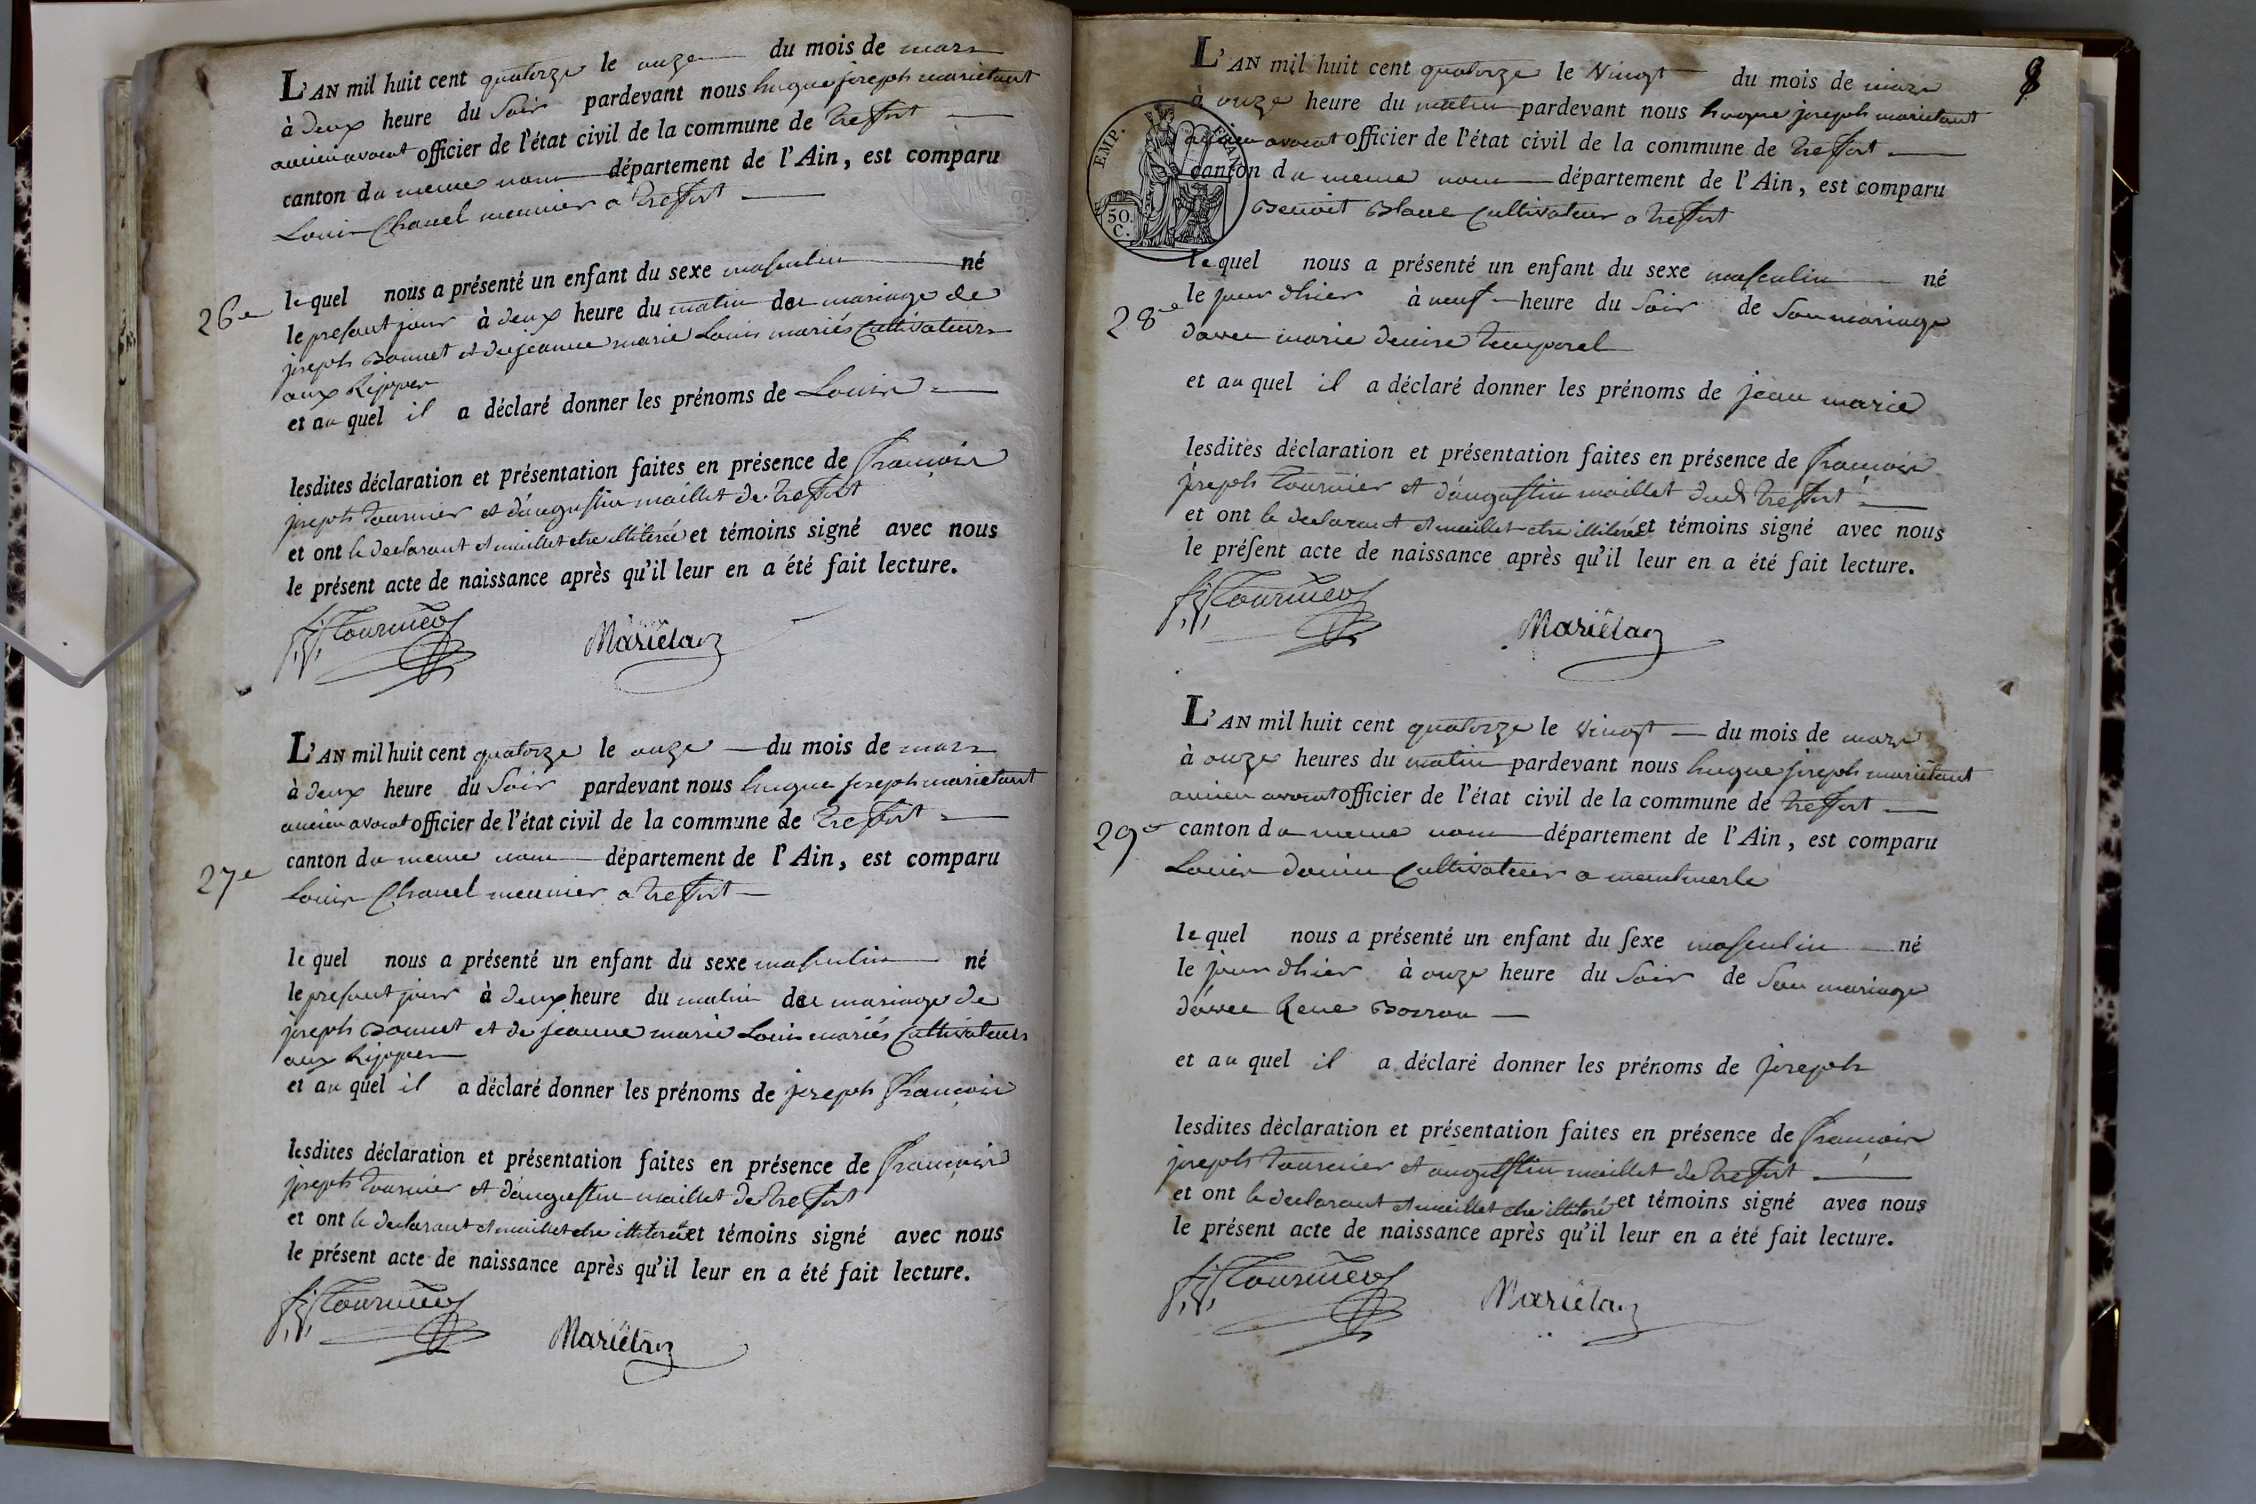 L'AN mil huit cent quatorze le onze du mois de mars
à deux heure du soir pardevant nous hugue joseph marietant
ancien avocat officier de l'état civil de la commune de treffort
canton du meme nom département de l'Ain, est comparu
Louis Chanel meunier a treffort
26e
le quel nous a présenté un enfant du sexe masculin né
le present jour à deux heure du matin du mariage de
joseph Bonnet et de jeanne marie Louis mariés Cultivateurs
aux
et au quel il a déclaré donner les prénoms de Louis
lesdites déclaration et présentation faites en présence de francois
joseph tournier et d'augustin maillet de treffort
et ont le declarant et maillet etre illiteré et témoins signé avec nous
le présent acte de naissance après qu'il leur en a été fait lecture.
f. j. Tournier Mariétan
L'AN mil huit cent quatorze le onze du mois de mars
à deux heure du soir pardevant nous hugue joseph marietant
ancien avocat officier de l'état civil de la commune de treffort
canton du meme nom département de l'Ain, est comparu
27e
Louis Chanel meunier a treffort
le quel nous a présenté un enfant du sexe masculin né
le present jour à deux heure du matin du mariage de
joseph Bonnet et de jeanne marie Louis mariés Cultivateurs
aux
et au quel il a déclaré donner les prénoms de joseph francois
lesdites déclaration et présentation faites en présence de francois
joseph tournier et d'augustin maillet de treffort
et ont le declarant et maillet etre illiteré et témoins signé avec nous
le présent acte de naissance après qu'il leur en a été fait lecture.
f. j. Tournier Mariétan
8
L'AN mil huit cent quatorze le vingt du mois de mars
à onze heure du matin pardevant nous hugue joseph marietant
ancien avocat officier de l'état civil de la commune de treffort
canton du meme nom département de l'Ain, est comparu
Benoit Blanc Cultivateur a treffort
EMP. FRAN.
50.
C.
le quel nous a présenté un enfant du sexe masculin né
28e
le jour dhier à neuf heure du soir de son mariage
d'avec marie denise temporel
et au quel il a déclaré donner les prénoms de jean marie
lesdites déclaration et présentation faites en présence de francois
joseph tournier et d'augustin maillet dud treffort
et ont le declarant et maillet etre illiteré et témoins signé avec nous
le préſent acte de naissance après qu'il leur en a été fait lecture.
f. j. Tournier Mariétan
L'AN mil huit cent quatorze le vingt du mois de mars
à onze heures du matin pardevant nous hugue joseph marietant
ancien avocat officier de l'état civil de la commune de treffort
29e
canton du meme nom département de l'Ain, est comparu
Louis Cultivateur a montmerle
le quel nous a présenté un enfant du ſexe masculin né
le jour dhier à onze heure du soir de son mariage
d'avec Rene
et au quel il a déclaré donner les prénoms de joseph
lesdites déclaration et présentation faites en présence de francois
joseph tournier et augustin maillet de treffort
et ont le declarant et maillet etre illiteré et témoins signé avec nous
le présent acte de naissance après qu'il leur en a été fait lecture.
f. j. Tournier Mariétan